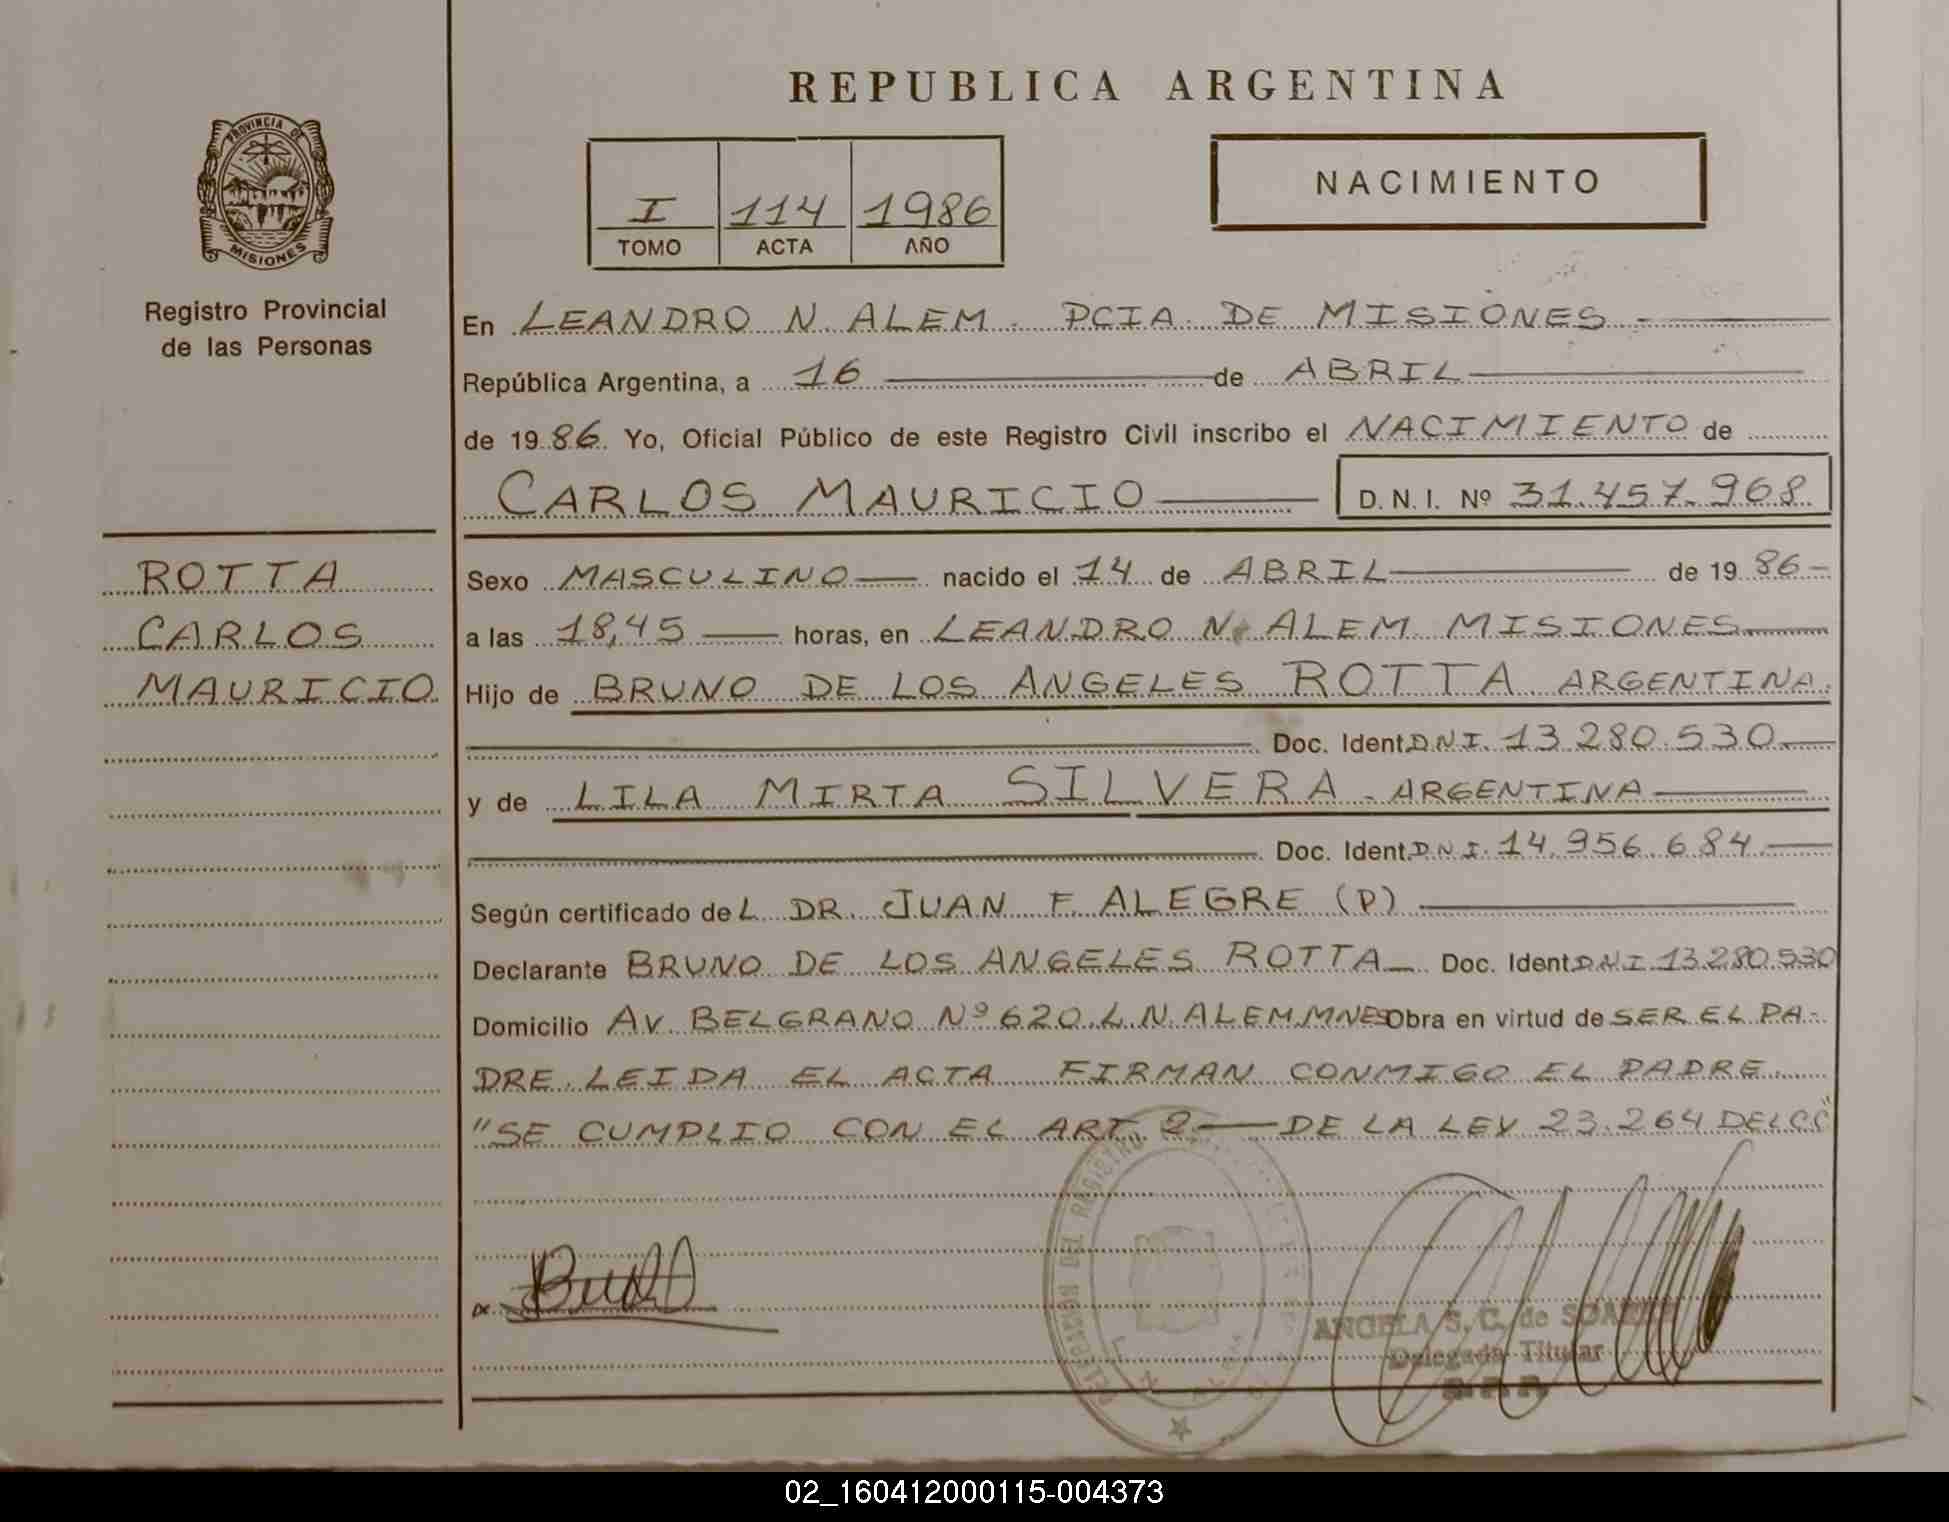 REPUBLICA ARGENTINA
PROVINCIA DE
MISIONES
Registro Provincial
de las Personas
I 114 1986
TOMO ACTA AÑO
NACIMIENTO
En LEANDRO N. ALEM. PCIA. DE MISIONES.
República Argentina, a 16 de ABRIL
de 1986. Yo, Oficial Público de este Registro Civil inscribo el NACIMIENTO de
CARLOS MAURICIO D. N. I. Nº 31.457.968
ROTTA
CARLOS
MAURICIO
Sexo MASCULINO nacido el 14 de ABRIL de 1986
a las 18,45 horas, en LEANDRO N. ALEM MISIONES
Hijo de BRUNO DE LOS ANGELES ROTTA ARGENTINA.
Doc. Ident D.N.I. 13.280.530
y de LILA MIRTA SILVERA. ARGENTINA
Doc. Ident. D.N.I. 14.956.684
Según certificado del DR. JUAN F. ALEGRE (P)
Declarante BRUNO DE LOS ANGELES ROTTA Doc. Ident D.N.I. 13.280.530
Domicilio AV. BELGRANO Nº 620. L.N. ALEM.MNES Obra en virtud de SER EL PA-
DRE. LEIDA EL ACTA FIRMAN CONMIGO EL PADRE.
"SE CUMPLIO CON EL ART. 2 DE LA LEY 23.264 DEL CC"
DEL REGISTRO
ANGELA S. C. de SOAREZ
Delegada Titular
02_160412000115-004373